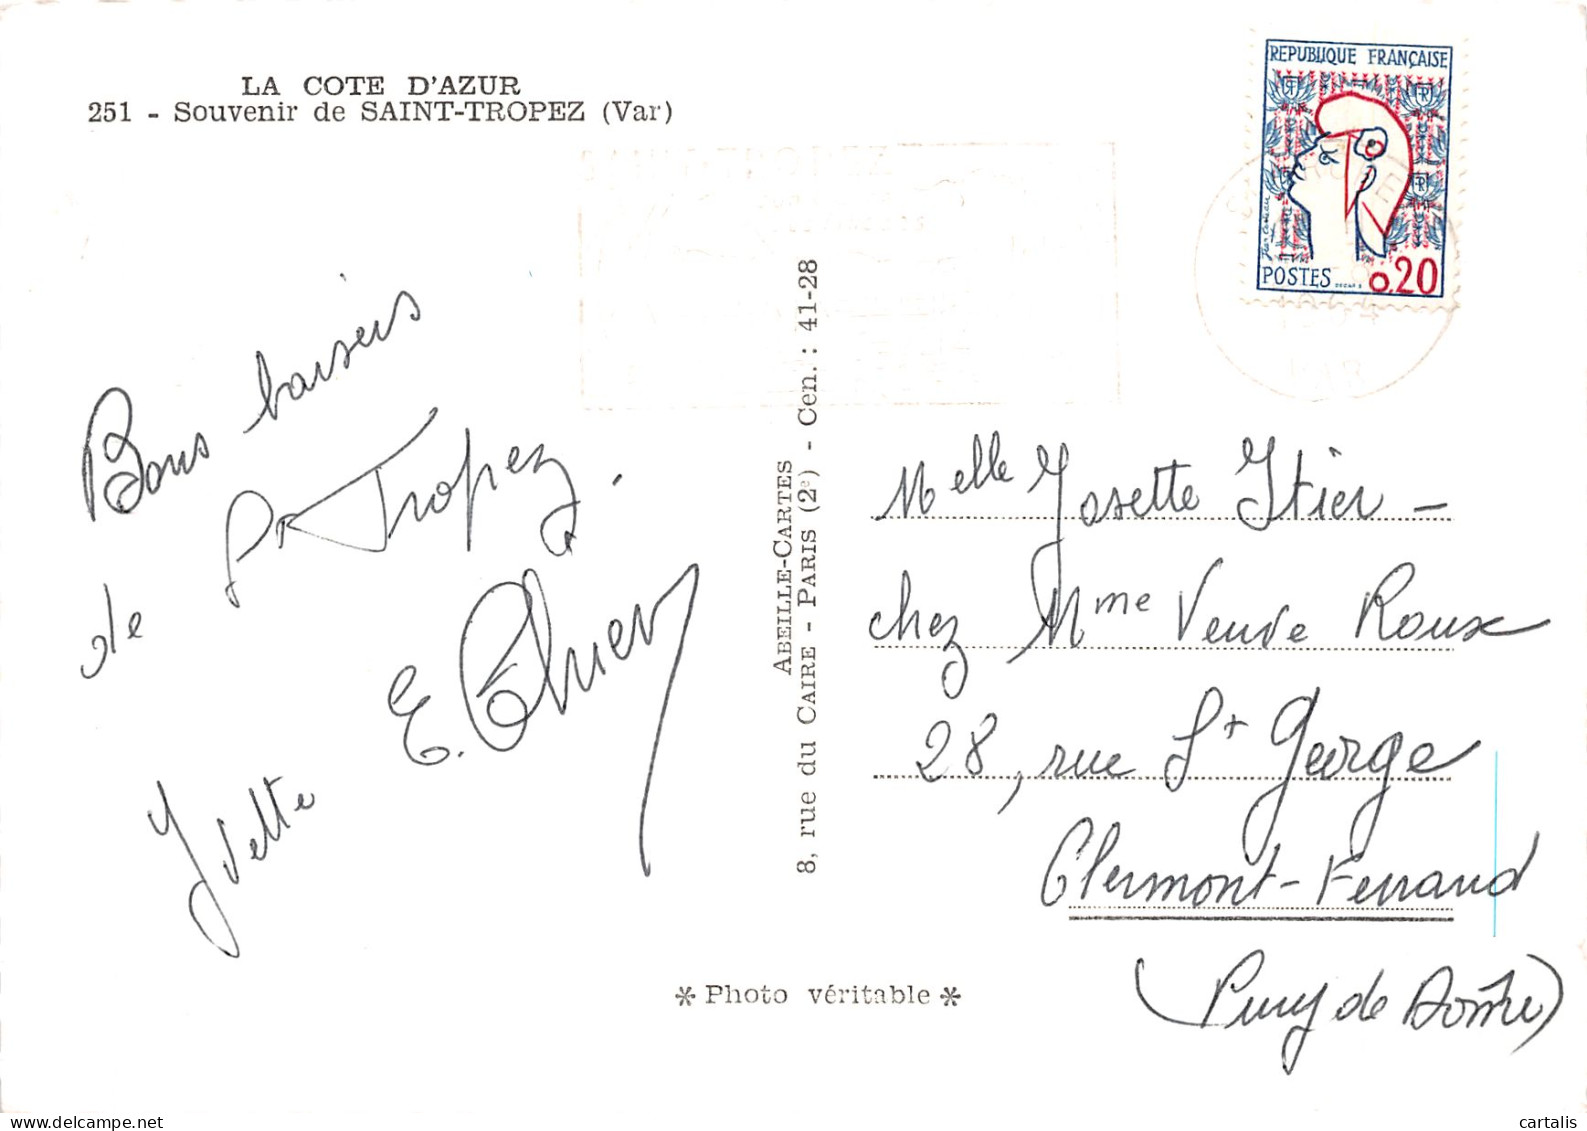 LA COTE D'AZUR
251 - Souvenir de SAINT-TROPEZ (Var)
REPUBLIQUE FRANÇAISE
POSTES
0,20
VAR
Bons baisers
de St Tropez.
Yvette
ABEILLE-CARTES
8, rue du CAIRE - PARIS (2e) - Cen. : 41-28
Melle Josette Itier -
chez Mme Veuve Roux
28, rue St George
Clermont-Ferrand
(Puy de Dôme)
* Photo véritable *
cartalis